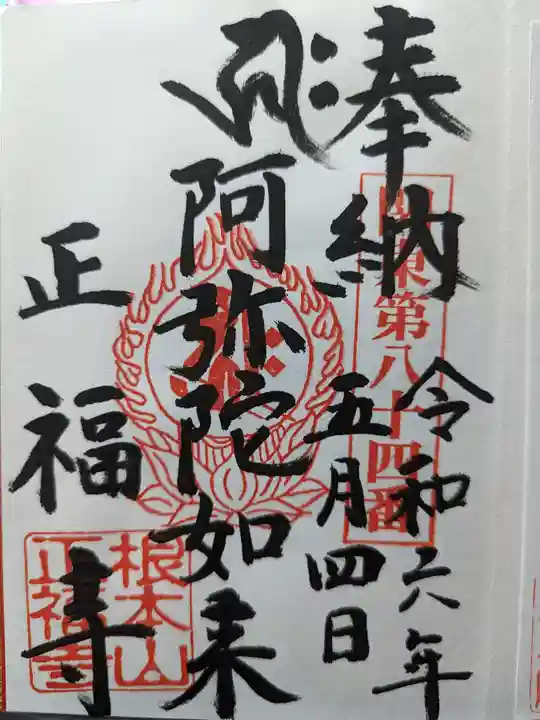 奉納
令和六年
五月四日
関東第八十四番
阿弥陀如来
正福寺
根本山
正福寺